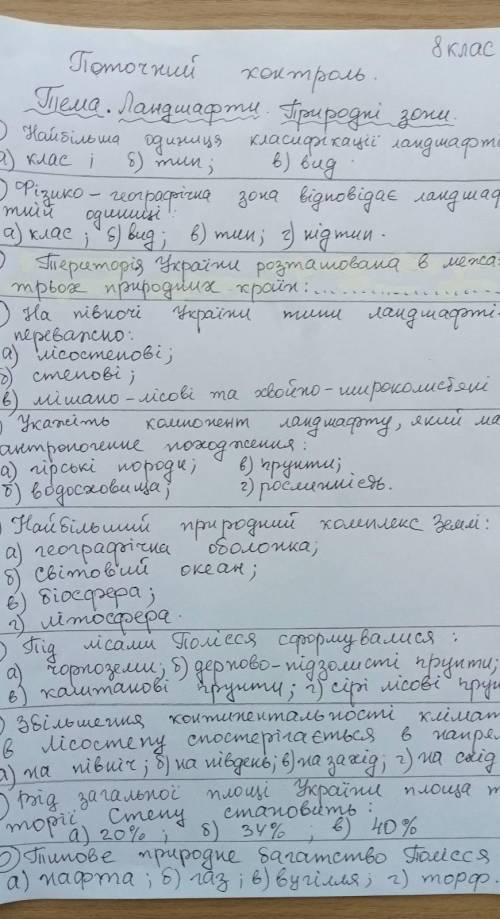 8 клас
Поточний контроль.
Тема. Ландшафти. Природні зони.
) Найбільша одиниця класифікації ландшафт
а) клас ; б) тип ; в) вид .
) Фізико-географічна зона відповідає ландшаф
тній одиниці :
а) клас ; б) вид ; в) тип ; г) підтип .
) Територія України розташована в межа
трьох природних країн:
) На півночі України типи ландшафті
переважно:
а) лісостепові;
б) степові;
в) мішано-лісові та хвойно-широколистяні
) Укажіть компонент ландшафту, який ма
антропогенне походження:
а) гірські породи; в) ґрунти;
б) водосховища; г) рослинність.
) Найбільший природний комплекс Землі:
а) географічна оболонка;
б) світовий океан;
в) біосфера;
г) літосфера.
) Під лісами Полісся сформувалися :
а) чорноземи; б) дерново-підзолисті ґрунти;
в) каштанові ґрунти; г) сірі лісові ґрун
) Збільшення континентальності клімат
в лісостепу спостерігається в напрям
а) на північ; б) на південь; в) на захід; г) на схід
) Від загальної площі України площа т
торії Степу становить :
а) 20% ; б) 34% ; в) 40%
0) Типове природне багатство Полісся
а) нафта ; б) газ ; в) вугілля ; г) торф .